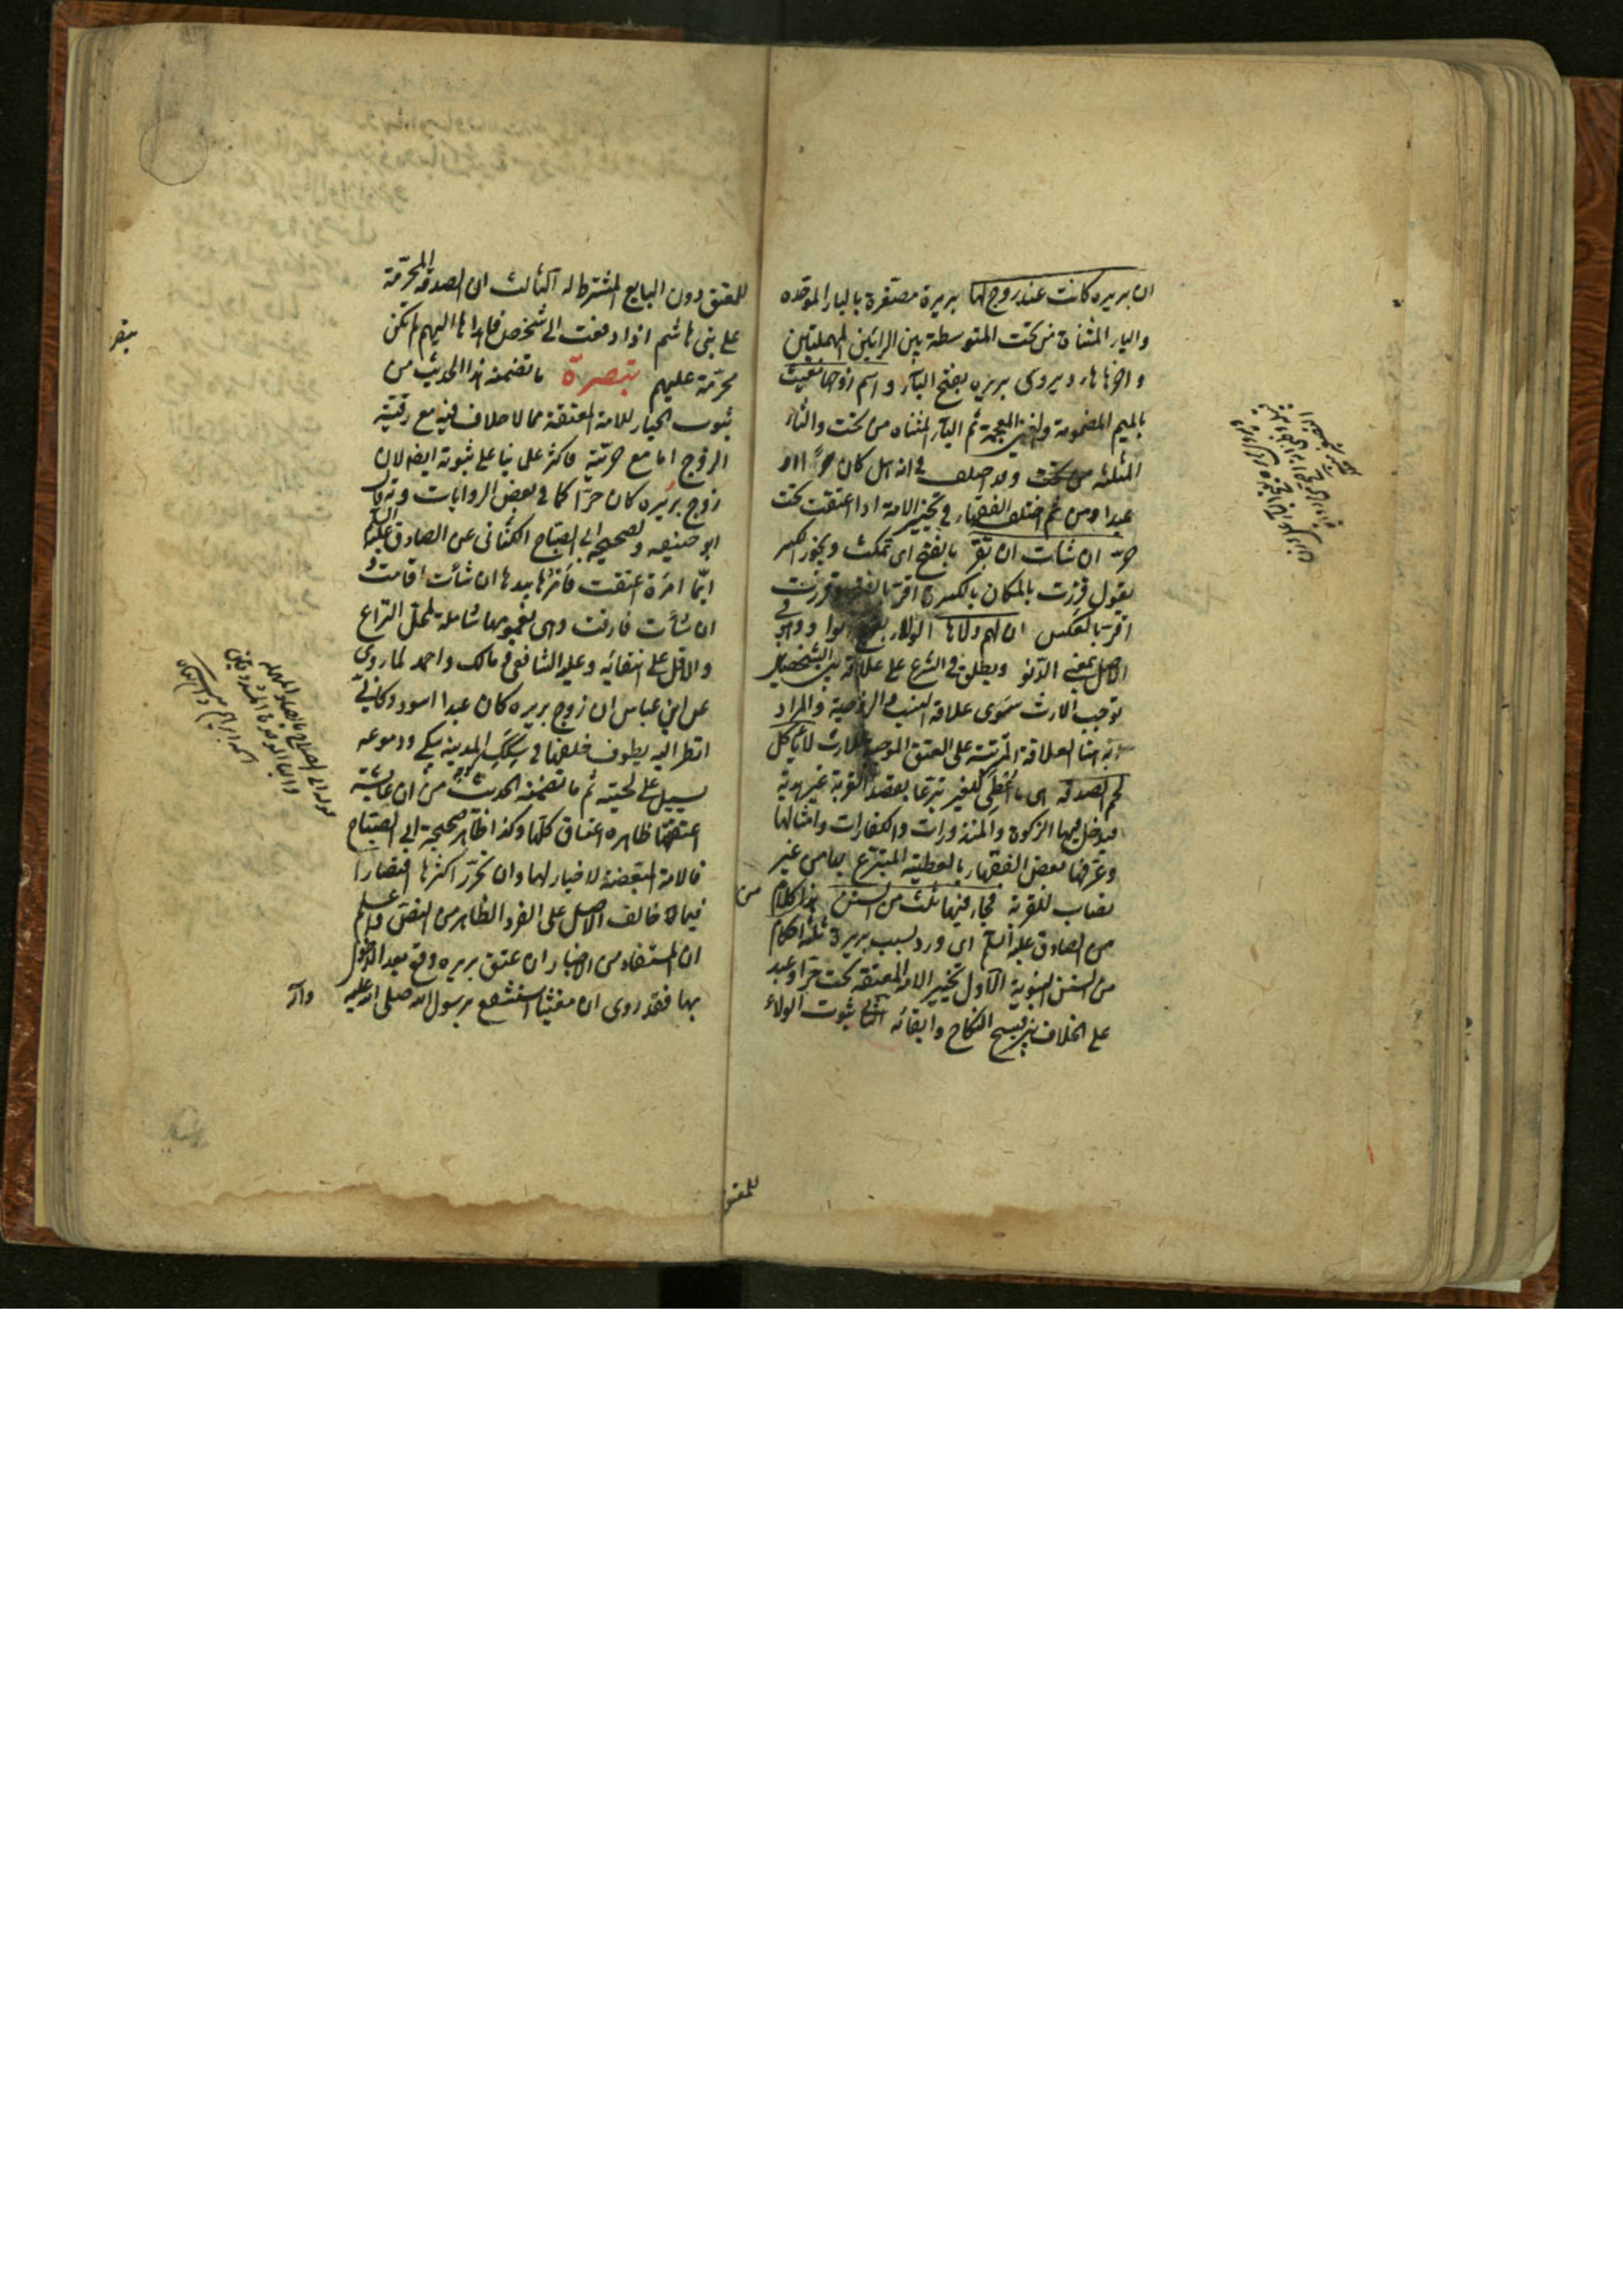 ان بريره كانت عند زوج لها بريرة مصغرة بالباء الموحده
والياء المثناة من تحت المتوسطة بين الرائين المهملتين
واخرها هاء ويروى بريره بفتح الباء واسم زوجها مغيث
بالميم المضمومة والغين المعجمة ثم الياء المثناه من تحت والثاء
المثلثه وقد اختلف في انه هل كان حرا او
عبدا ومن ثم اختلف الفقهاء في تخيير الامة اذا اعتقت تحت
حر ان شات ان تقر بالفتح اى تمكث ويجوز الكسر
يقول قررت بالمكان بالكسر اقر بالفتح وقررت
اقر بالعكس ان لهم ولاها الولاء بفتح الواو وهو في
الاصل بمعنى الدنو ويطلق في الشرع على علاقة بين الشخصين
توجب الارث سوى علاقة النسب والزوجية والمراد
به هنا العلاقة المترتبة على العتق الموجبة للارث لا ياكل
لحم الصدقه اى ما اعطى للغير تبرعا بقصد القربة غير هدية
فيدخل فيها الزكوة والمنذورات والكفارات وامثالها
وعرفها بعض الفقهاء بالعطية المتبرع بها من غير
نصاب للقربة فجاء فيها ثلث من السنن هذا كلام من
من الصادق عليه السلم اى ورد بسبب بريرة ثلثة احكام
من السنن النبوية الاول تخيير الامة المعتقة تحت حر او عبد
على الخلاف بين فسخ النكاح وابقائه الثاني ثبوت الولاء
للمعتق
للمعتق دون البايع المشترط له الثالث ان الصدقة المحرمة
على بنى هاشم اذا دفعت الى شخص فاهداها اليهم لم تكن
محرمة عليهم تبصرة ما تضمنه هذا الحديث من
ثبوت الخيار للامة المعتقة مما لا خلاف فيه مع رقية
الزوج اما مع حريته فاكثر علمائنا على ثبوته ايضا لان
زوج بريره كان حرا كما في بعض الروايات وبه قال
ابو حنيفه ولصحيحة ابي الصباح الكناني عن الصادق عليه السلم
ايما امرءة اعتقت فامرها بيدها ان شأت اقامت و
ان شأت فارقت وهى بعمومها شاملة لمحل النزاع
والاقل على انتفائه وعليه الشافعي ومالك واحمد لما روى
عن ابن عباس ان زوج بريره كان عبدا اسود وكاني
انظر اليه يطوف خلفها في سكك المدينه يبكى ودموعه
تسيل على لحيته ثم ما تضمنه الحديث من ان عايشة
اعتقتها ظاهره اعتاق كلها وكذا ظاهر صحيحة ابي الصباح
فالامة المبعضة لا خيار لها وان تحرر اكثرها اقتصارا
فيما خالف الاصل على الفرد الظاهر من النص واعلم
ان المستفاد من الاخبار ان عتق بريره وقع بعد الدخول
بها فقد روى ان مغيثا استشفع برسول الله صلى الله عليه وآله